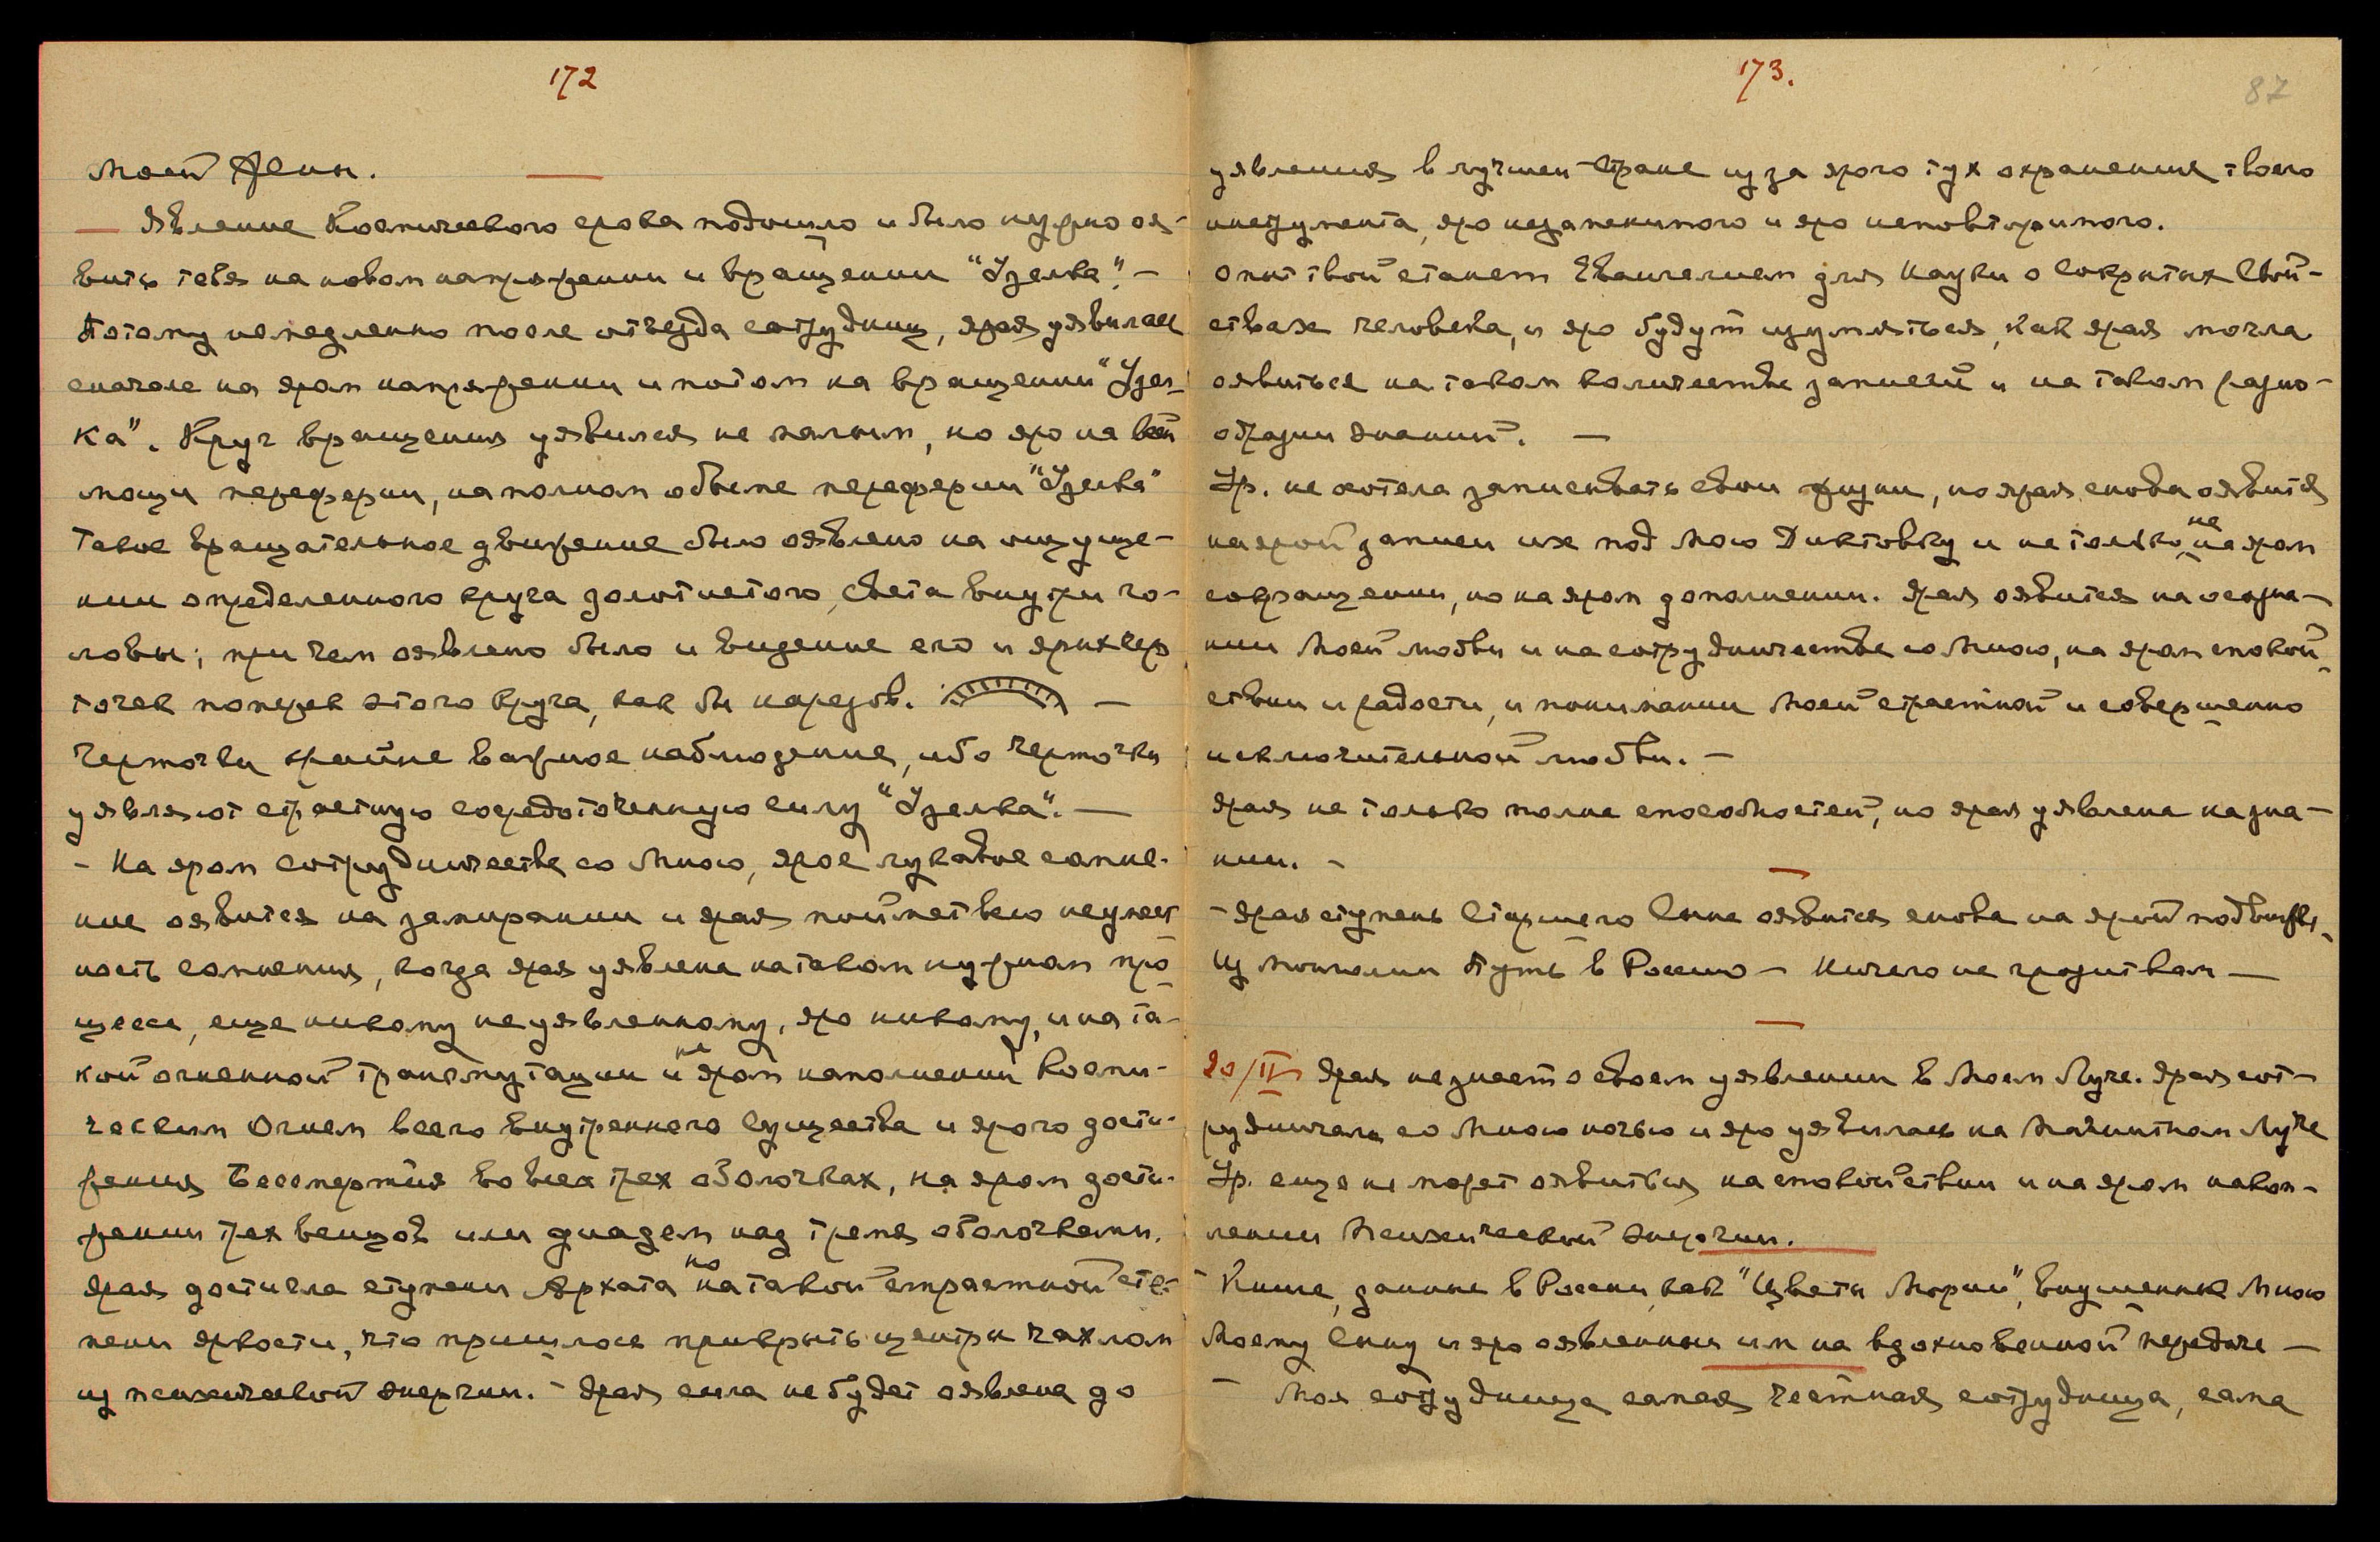 172
Моей Лены.
— Явление Космического срока подошло и было нужно оя-
вить тебя на новом напряжении и вращении "Узелка". —
Потому немедленно после отъезда сотрудниц, ярая уявилась
сначала на яром напряжении и потом на вращении "Узел-
ка". Круг вращения уявился не малым, но яро на всей
мощи переферии, на полном объеме переферии "Узелка"
Такое вращательное движение было оявлено на ощуще-
нии определенного круга золотистого света внутри го-
ловы; при чем оявлено было и видение его и ярых чер
точек поперек этого круга, как бы нарезов. —
Черточки крайне важное наблюдение, ибо черточки
уявляют страстную сосредоточенную силу "Узелка". —
- На яром сотрудничестве со Мною, ярое лукавое сомне-
ние оявится на замирании и ярая поймет всю неумест
ность сомнения, когда ярая уявлена на таком нужном про-
цессе, еще никому не уявленному, яро никому, и на та-
кой огненной трансмутации и на яром наполнении Косми-
ческим Огнем всего внутреннего существа и ярого дости-
жения Бессмертия во всех трех оболочках, на яром дости-
жении трех венцов или диадем над тремя оболочками.
Ярая достигла ступени Архата но на такой страстной сте-
пени яркости, что пришлось прикрыть центры чехлом
из психической энергии. - Ярая сила не будет оявлена до
173.
87
уявления в лучшей Стране из за ярого тук охранения твоего
инструмента, яро незаменимого и яро неповторимого.
Опыт твой станет Евангелием для Науки о Сокрытых Свой-
ствах человека, и яро будут изумляться, как ярая могла
оявиться на таком количестве записей и на таком разно-
образии знаний. —
Ур. не хотела записывать свои жизни, но ярая снова оявится
на ярой записи их под Мою Диктовку и не только не на яром
сокращении, но на яром дополнении. Ярая оявится на осозна-
нии Моей любви и на сотрудничестве со Мною, на яром спокой-
ствии и радости, и понимании Моей страстной и совершенно
исключительной любви. —
Ярая не только полна способностей, но ярая уявлена на зна-
нии. -
- Ярая ступень Старшего Сына оявится снова на ярой подвижн.
Из Монголии Путь в Россию — Ничего не грозит вам —
20/II Ярая не знает о своем уявлении в Моем Луче. Ярая сот-
рудничала со Мною ночью и яро уявилась на Магнитном Луче
Ур. еще не может оявиться на спокойствии и на яром накоп-
лении Психической Энергии.
- Книга, данные в России, как "Цветы Мории", внушенные Мною
Моему Сыну и яро оявленные им на вдохновенной передаче —
- Моя сотрудница самая честная сотрудница, сама